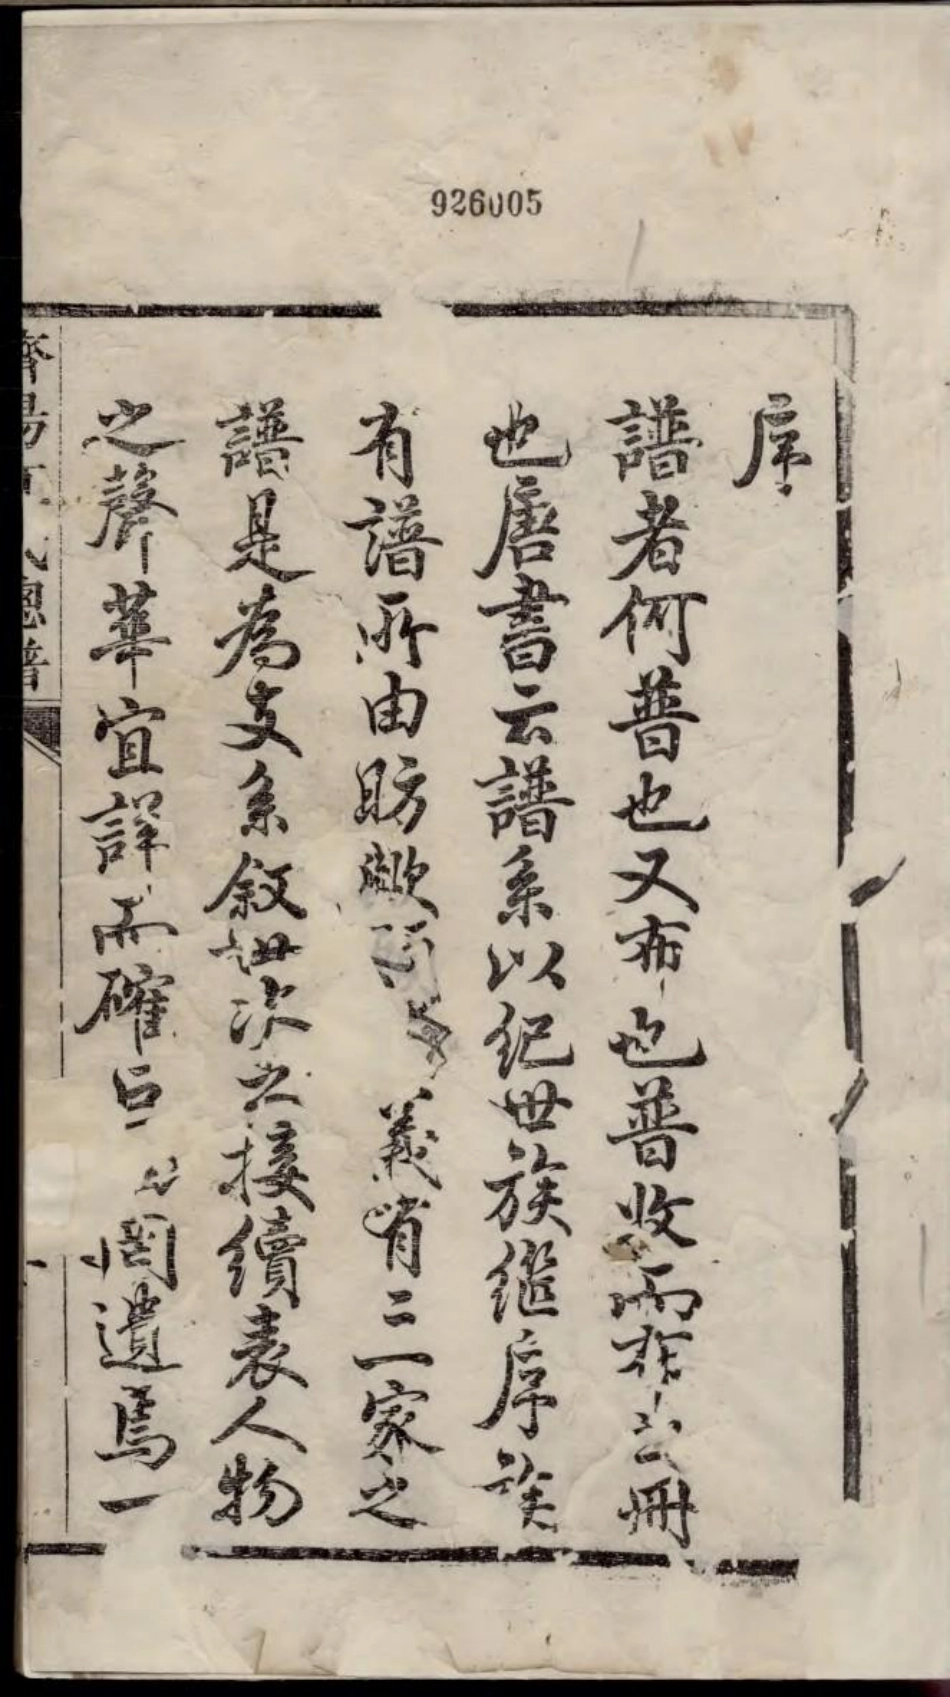 926005
序
譜者何普也又布也普收而布之冊
也唐書云譜系以紀世族繼序族
有譜所由昉歟 義有二一家之
譜是為支系敘世次之接續表人物
之聲華宜詳而確 罔遺焉一